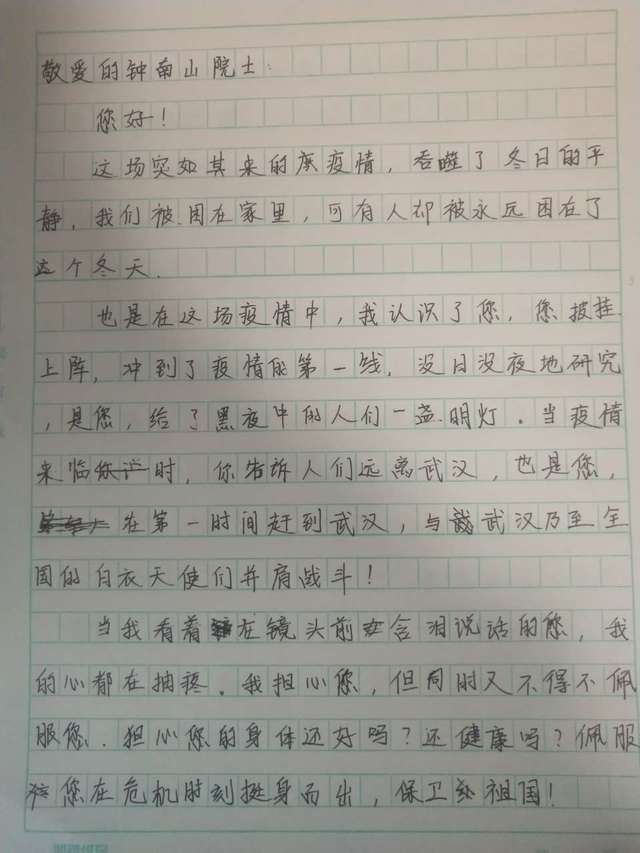 敬爱的钟南山院士:
您好!
这场突如其来的疫情,吞噬了冬日的平
静,我们被困在家里,可有人却被永远困在了
这个冬天.
也是在这场疫情中,我认识了您,您披挂
上阵,冲到了疫情的第一线,没日没夜地研究
,是您,给了黑夜中的人们一盏明灯.当疫情
来临时,你告诉人们远离武汉,也是您,
在第一时间赶到武汉,与武汉乃至全
国的白衣天使们并肩战斗!
当我看着在镜头前含泪说话的您,我
的心都在抽疼.我担心您,但同时又不得不佩
服您.担心您的身体还好吗?还健康吗?佩服
您在危机时刻挺身而出,保卫祖国!